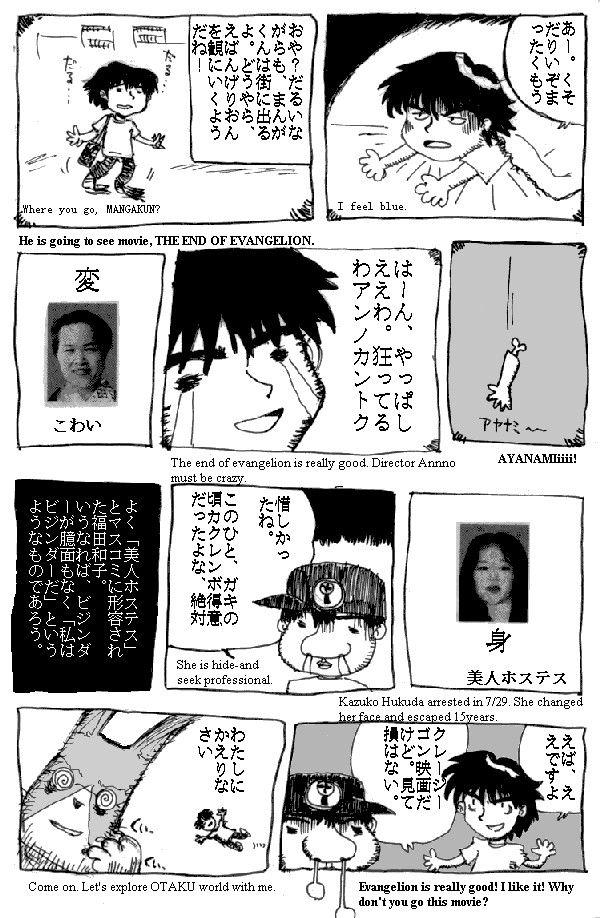 あー。くそ
だりいぞま
ったくもう
I feel blue.
おや？だるいな
がらも、まんが
くんは街に出る
よ。どうやら、
えばんげりおん
を観にいくよう
だね！
だる…
だる…
Where you go, MANGAKUN?
He is going to see movie, THE END OF EVANGELION.
アヤナミ〜
AYANAMIiiii!
はーん、やっぱし
ええわ。狂ってる
わアンノカントク
The end of evangelion is really good. Director Annno
must be crazy.
変
こわい
身
美人ホステス
Kazuko Hukuda arrested in 7/29. She changed
her face and escaped 15years.
惜しかっ
たね。
このひと、ガキの
頃カクレンボ得意
だったよな、絶対
She is hide-and
seek professional.
よく「美人ホステス」
とマスコミに形容され
た福田和子。
いうなれば、ビジンダ
ーが臆面もなく「私は
ビジンダーだ」という
ようなものであろう。
えば、え
えですよ
クレージー
ゴン映画だ
けど。見て
損はない。
Evangelion is really good! I like it! Why
don't you go this movie?
わたしに
かえりな
さい
ぐいっ
ぐいっ
Come on. Let's explore OTAKU world with me.